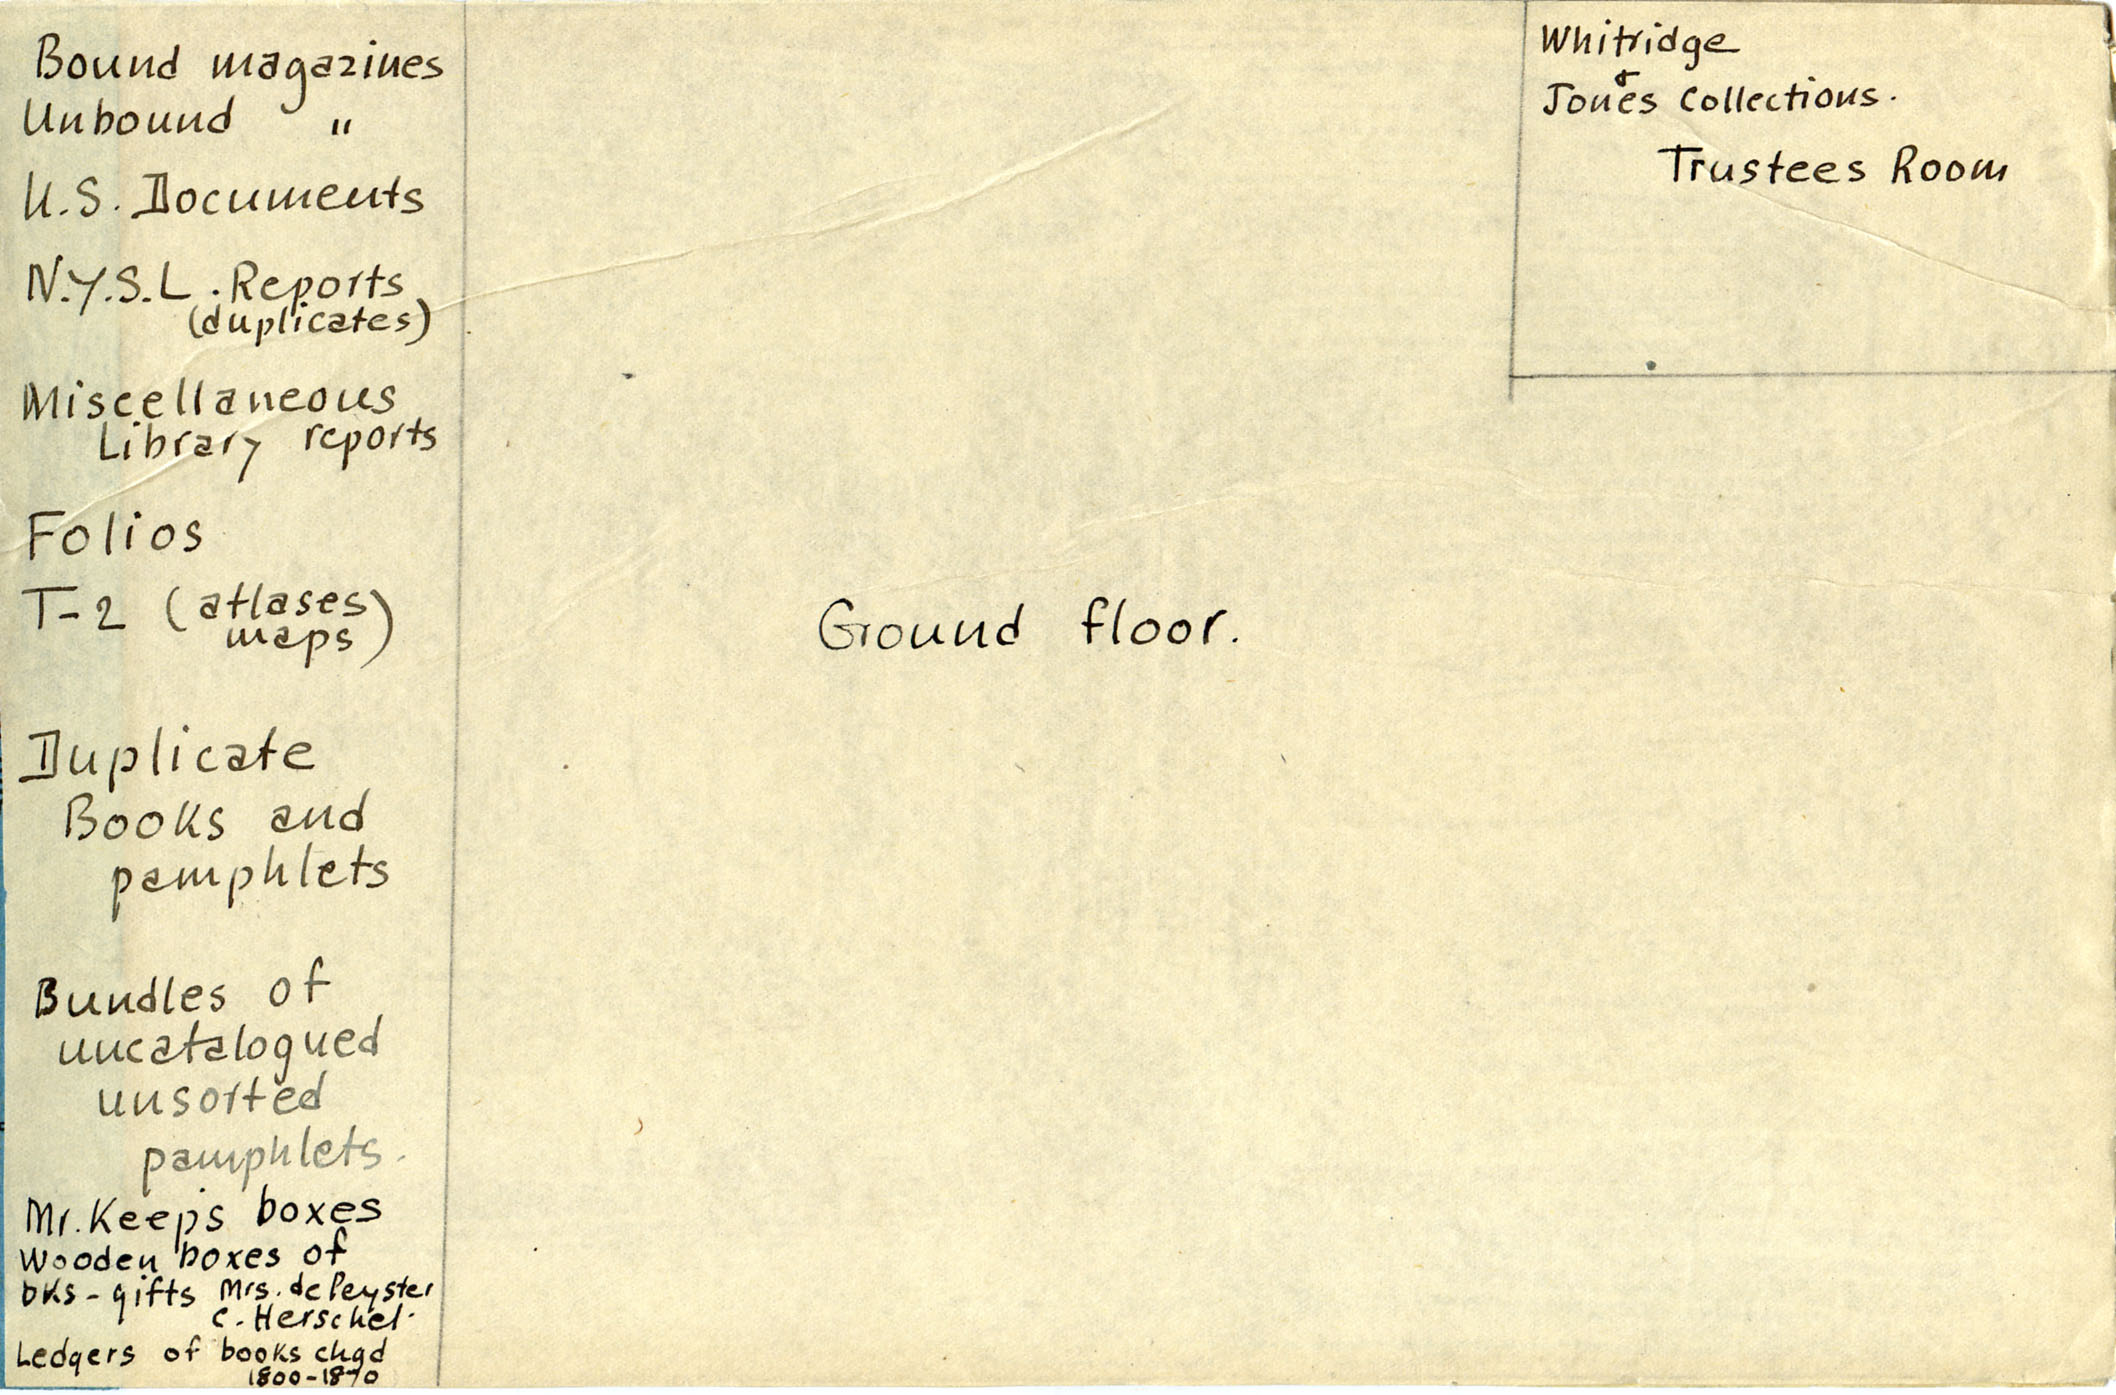 Bound magazines
Unbound "
U.S. Documents
N.Y.S.L. Reports
(duplicates)
Miscellaneous
Library reports
Folios
T-2 (atlases
maps)
Duplicate
Books and
pamphlets
Bundles of
uncatalogued
unsorted
pamphlets.
Mr. Keep's boxes
Wooden boxes of
bks - gifts Mrs. de Peyster
C. Herschel.
Ledgers of books chgd
1800-1870
Ground floor.
Whitridge
&
Jones Collections.
Trustees Room